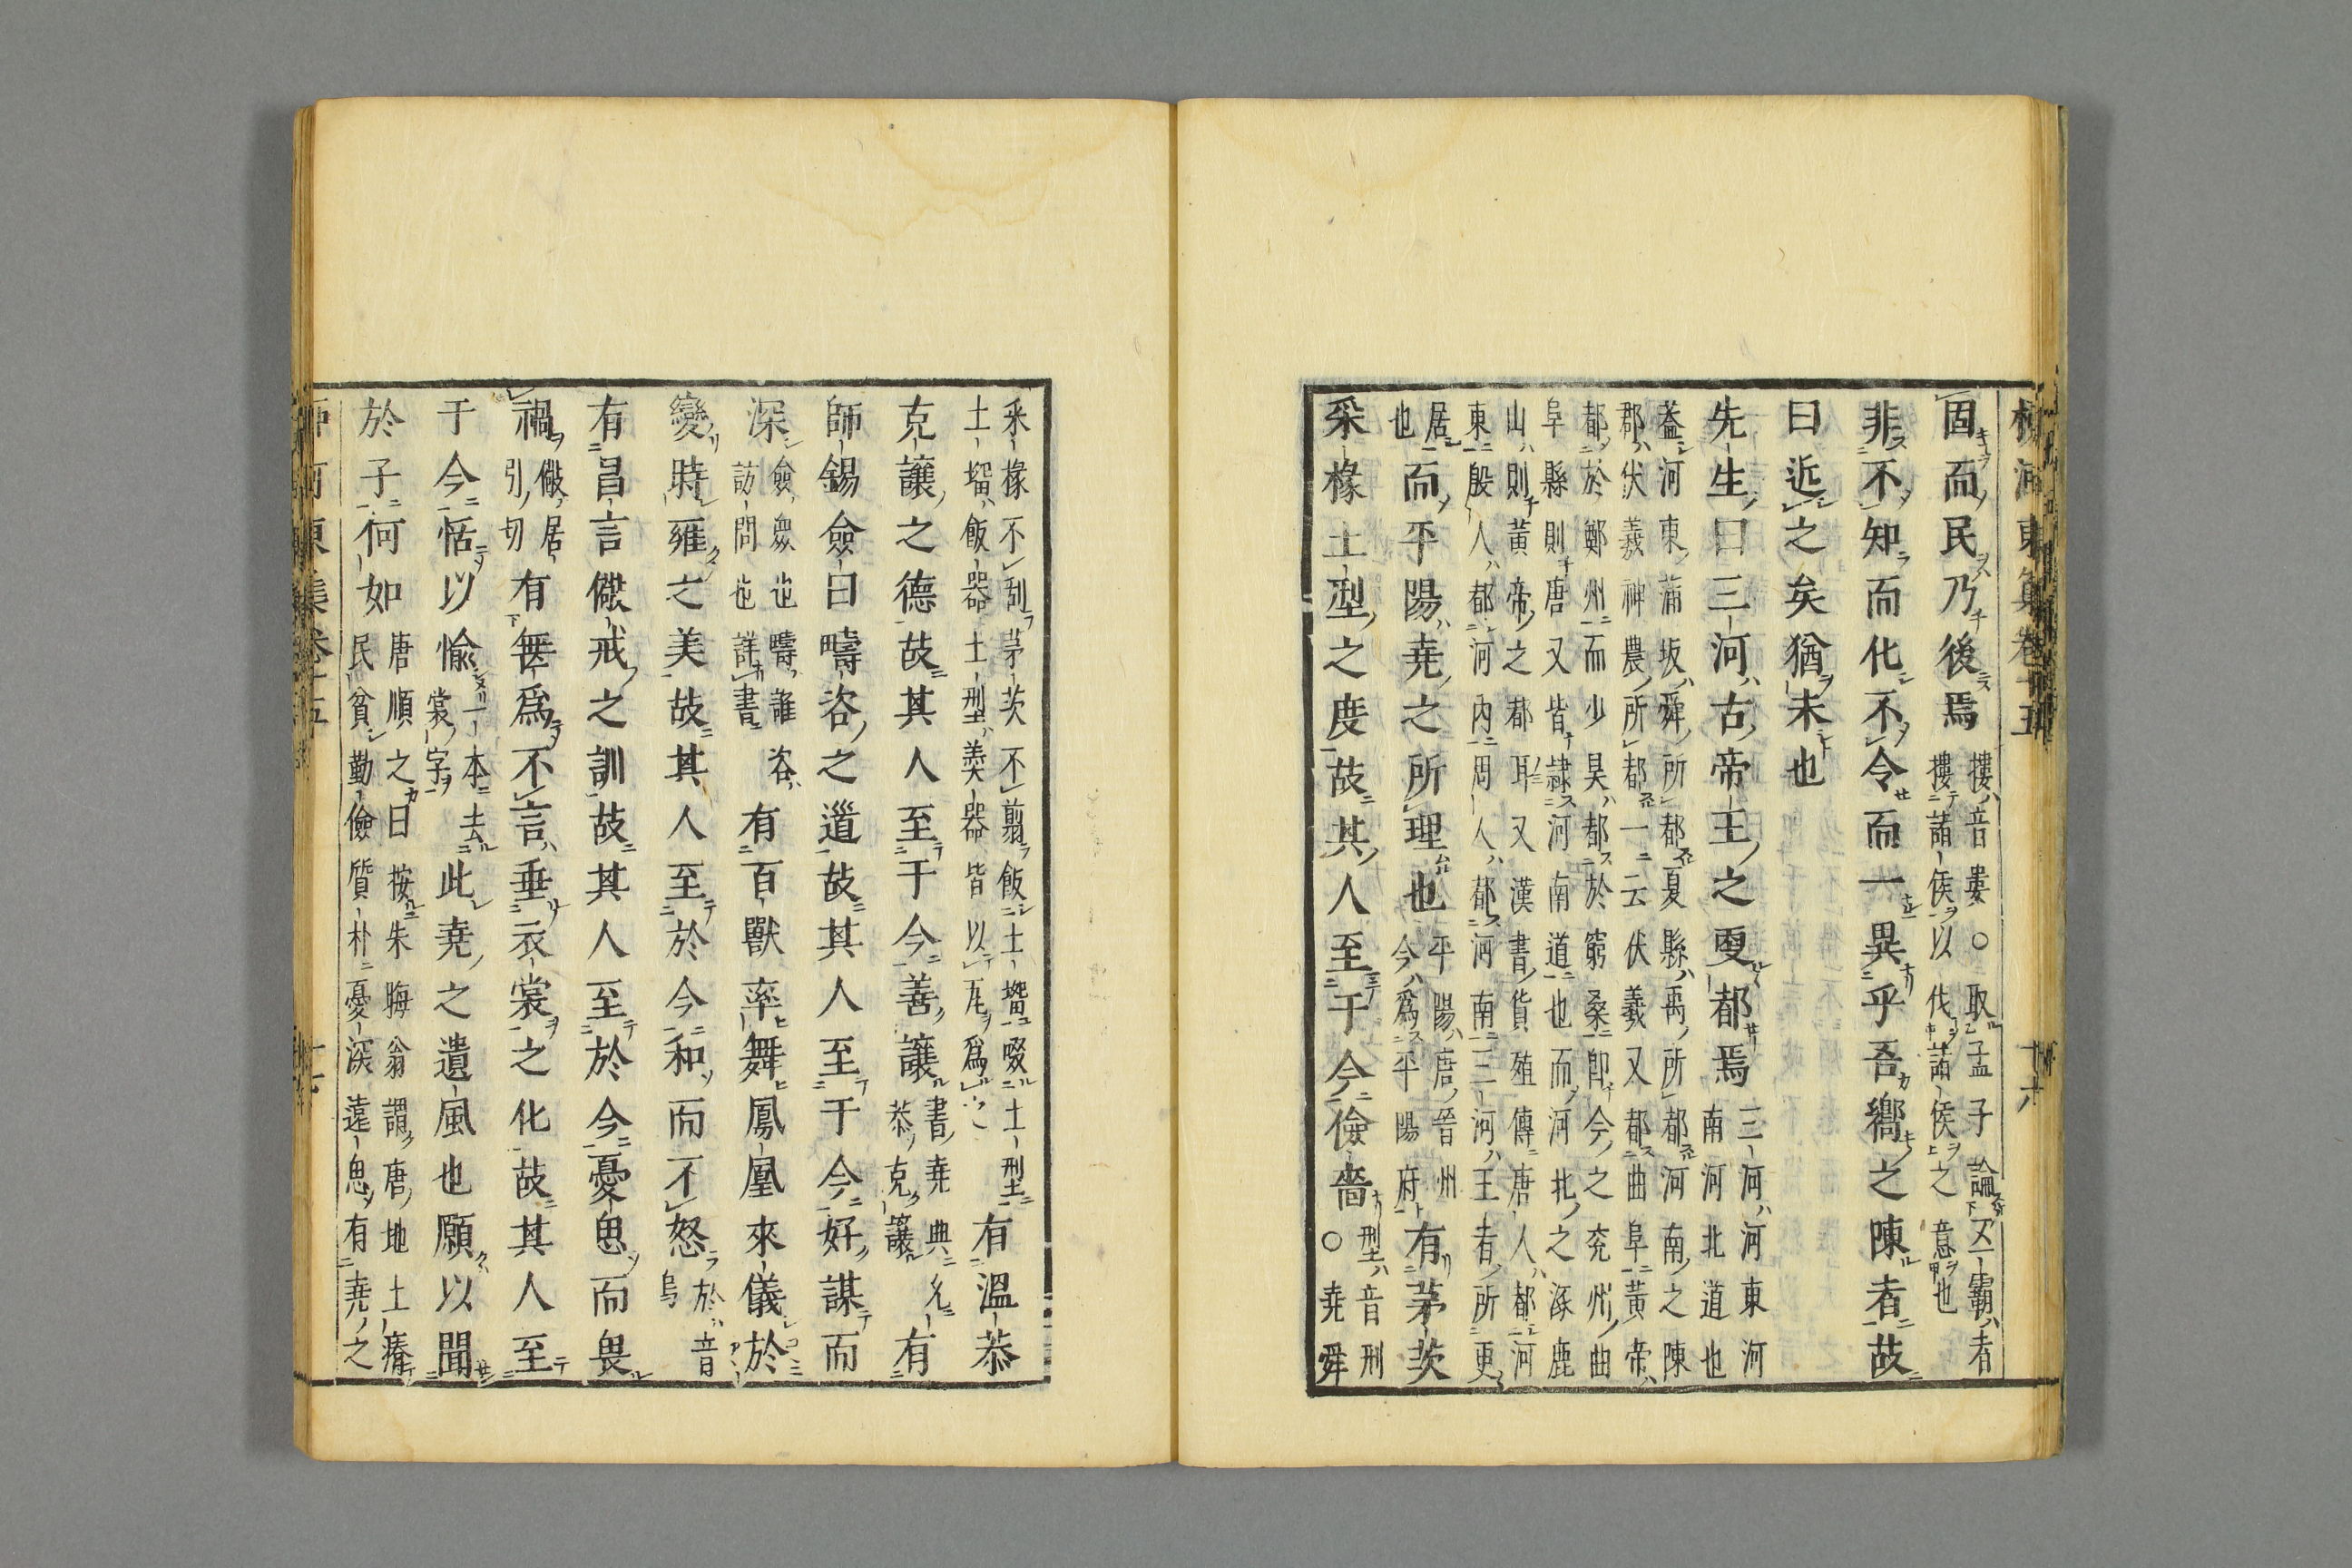 柳河東集卷十五 十六
固而民乃後焉 摟音婁○取孟子論五霸者
摟諸侯以伐諸侯之意也
非不知而化不令而一異乎吾嚮之陳者故
曰近之矣猶未也
先生曰三河古帝王之更都焉 三河河東河
南河北道也
蓋河東蒲坂舜所都夏縣禹所都河南之陳
郡伏羲神農所都一云伏羲又都曲阜黃帝
都於鄭州而少昊都於窮桑卽今之兗州曲
阜縣則唐又皆隸河南道也而河北之涿鹿
山則黃帝之都耳又漢書貨殖傳唐人都河
東殷人都河內周人都河南三河王者所更
居
也 而平陽堯之所理也 平陽唐晉州
今爲平陽府 有茅茨
采椽土型之度故其人至于今儉嗇 型音刑
○堯舜
采椽不刮茅茨不翦飯土塯啜土型
土塯飯器土型羹器皆以瓦爲之 有溫恭
克讓之德故其人至于今善讓 書堯典允
恭克讓 有
師錫僉曰疇咨之道故其人至于今好謀而
深 僉衆也疇誰咨
訪問也詳書 有百獸率舞鳳凰來儀於
變時雍之美故其人至於今和而不怒 於音
烏
有昌言儆戒之訓故其人至於今憂思而畏
禍 儆居
引切 有無爲不言垂衣裳之化故其人至
于今恬以愉 一本去
裳字 此堯之遺風也願以聞
於子何如 唐順之曰按朱晦翁謂唐地土瘠
民貧勤儉質朴憂深遠思有堯之
河東集卷十五